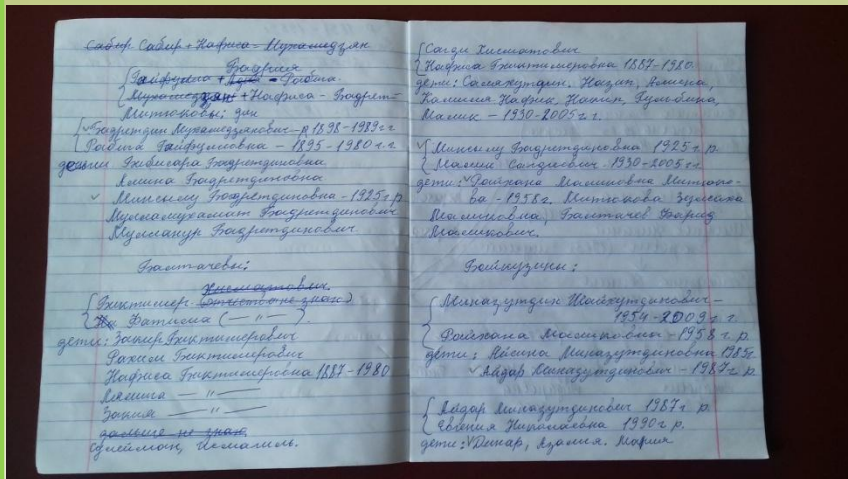 Сабир Сабир + Нафиса = Мухамедзян
Бадрия
Гайфулла + = Рабига.
Мухамедзян + Нафиса - Бадрет-
Митюковы: дин
Бадретдин Мухамедзянович - р. 1898-1989 гг
Рабига Гайфулловна - 1895-1980 г.г
дети Бибисара Бадретдиновна
Амина Бадретдиновна
Минсылу Бадретдиновна - 1925 г.р.
Муллаахмат Бадретдинович
Мулланур Бадретдинович
Балтачевы:
Биктимер. (отчество не знаю)
Фатима (— " —).
дети: Закир Биктимерович
Рахим Биктимерович
Нафиса Биктимеровна 1887-1980
— " —
Заким — " —
дальше не знаю
Сулейман, Исмагиль.
Сагди Хисматович
Нафиса Биктимеровна 1887-1980.
дети: Салахутдин. Назип, Амина,
Камиля Нафик, Накип, Гульбика,
Малик - 1930-2005 г.г.
Минсылу Бадретдиновна 1925 г.р.
Малик Сагдиевич - 1930-2005 гг.
дети: Райхана Маликовна Митюко-
ва - 1958 г. Митюкова Зульхаха
Маликовна Балтачев Фарид
Маликович.
Байкузины:
Миназутдин Шайхутдинович -
1954-2009 г г.
Райхана Маликовна - 1958 г. р.
дети: Айсина Миназутдиновна 1983 г
Айдар Миназутдинович - 1987 г.
Айдар Миназутдинович 1987 г р.
Евгения Николаевна 1990 г. р.
дети: Динар, Азалия. Мария